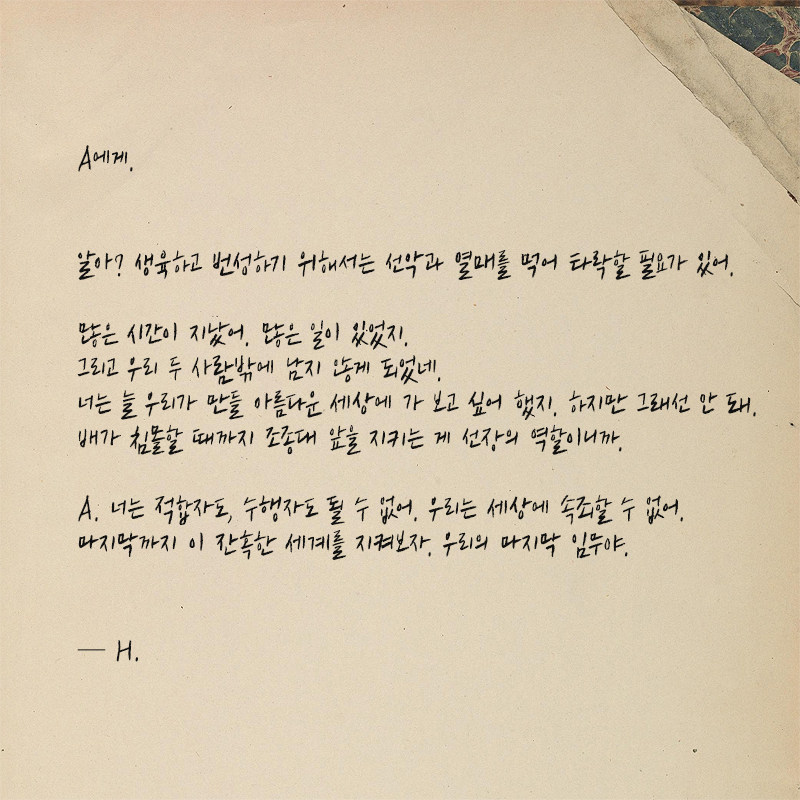 A에게.
알아? 생육하고 번성하기 위해서는 선악과 열매를 먹어 타락할 필요가 있어.
많은 시간이 지났어. 많은 일이 있었지.
그리고 우리 두 사람밖에 남지 않게 되었네.
너는 늘 우리가 만들 아름다운 세상에 가 보고 싶어 했지. 하지만 그래선 안 돼.
배가 침몰할 때까지 조종대 앞을 지키는 게 선장의 역할이니까.
A. 너는 적합자도, 수행자도 될 수 없어. 우리는 세상에 속죄할 수 없어.
마지막까지 이 잔혹한 세계를 지켜보자. 우리의 마지막 임무야.
— H.